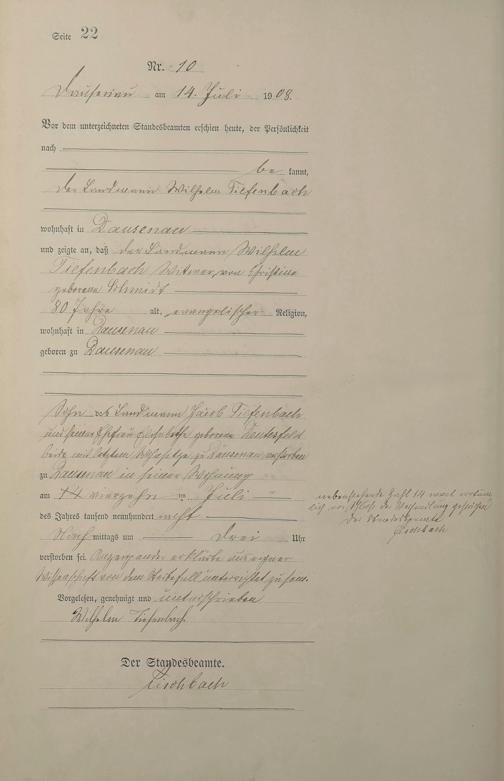 Seite 22
Nr. 10
Dausenau am 14. Juli 1908.
Vor dem unterzeichneten Standesbeamten erschien heute, der Persönlichkeit
nach
be kannt,
der Landmann Wilhelm Tiefenbach
wohnhaft in Dausenau
und zeigte an, daß der Landmann Wilhelm
Tiefenbach Witwer von Christine
geborene Schmidt
80 Jahre alt, evangelischer Religion,
wohnhaft in Dausenau
geboren zu Dausenau
Sohn des Landmann Jacob Tiefenbach
und seiner Ehefrau geborene
beide mit letztem Wohnsitze zu Dausenau verstorben
zu Dausenau in seiner Wohnung
am 14 vierzehn ten Juli
des Jahres tausend neunhundert acht
Nach mittags um drei Uhr
verstorben sei. Anzeigender erklärte aus eigner
Wissenschaft von dem Sterbefall unterrichtet zu sein.
Vorgelesen, genehmigt und unterschrieben
Wilhelm Tiefenbach
Der Standesbeamte.
Fischbach
nebenstehende Zahl 14
Der Standesbeamte
Fischbach